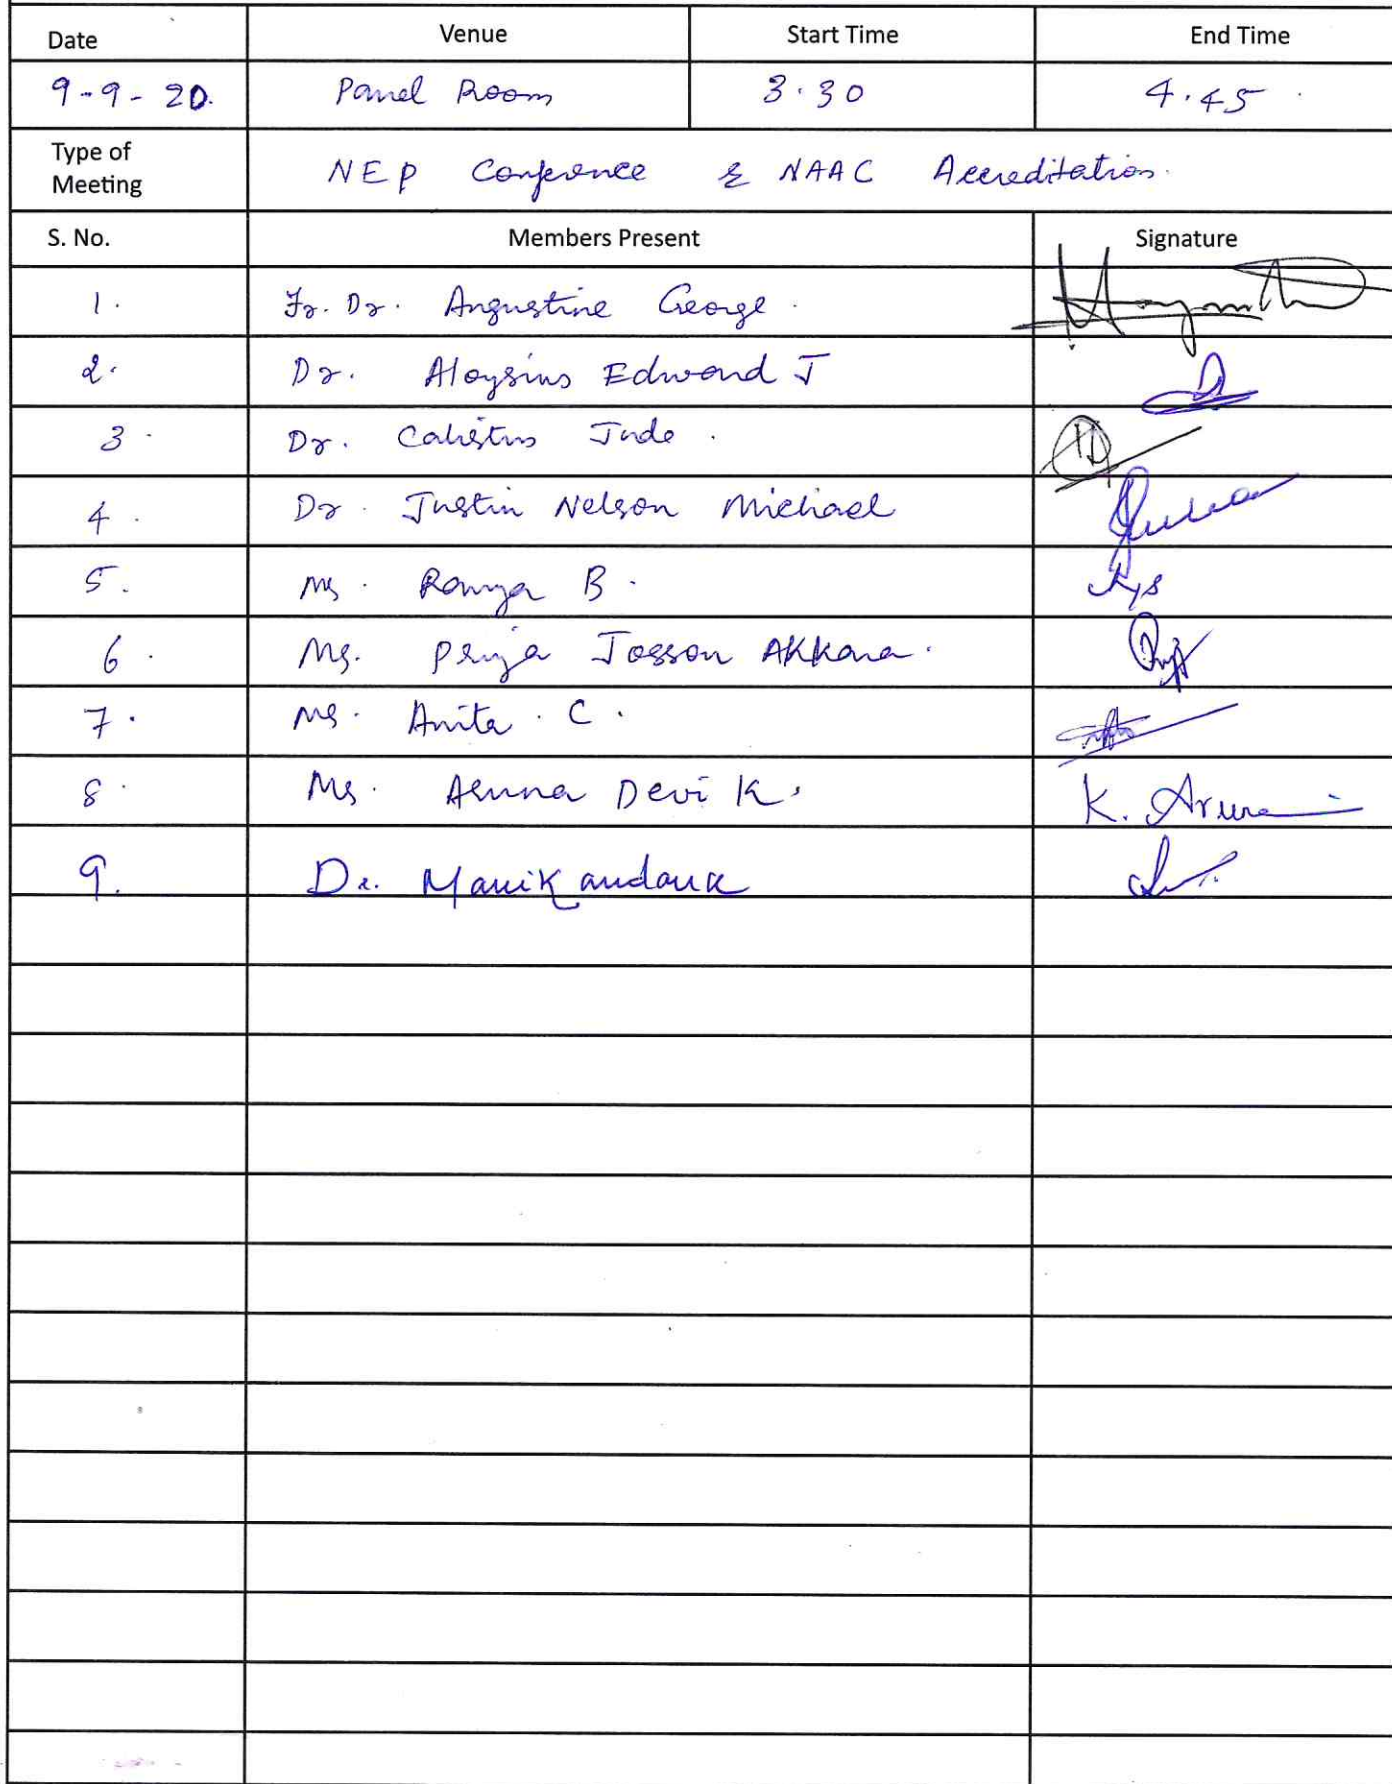 Date Venue Start Time End Time
9-9-20. Panel Room 3.30 4.45
Type of
Meeting
NEP Conference & NAAC Accreditation.
S. No. Members Present Signature
1. Fr. Dr. Augustine George.
2. Dr. Aloysius Edward J
3. Dr. Calistus Jude.
4. Dr. Justin Nelson Michael
5. Ms. Ramya B.
6. Ms. Priya Josson Akkara.
7. Ms. Anita. C.
8. Ms. Aruna Devi K. K. Aruna
9. Dr. Manikandan